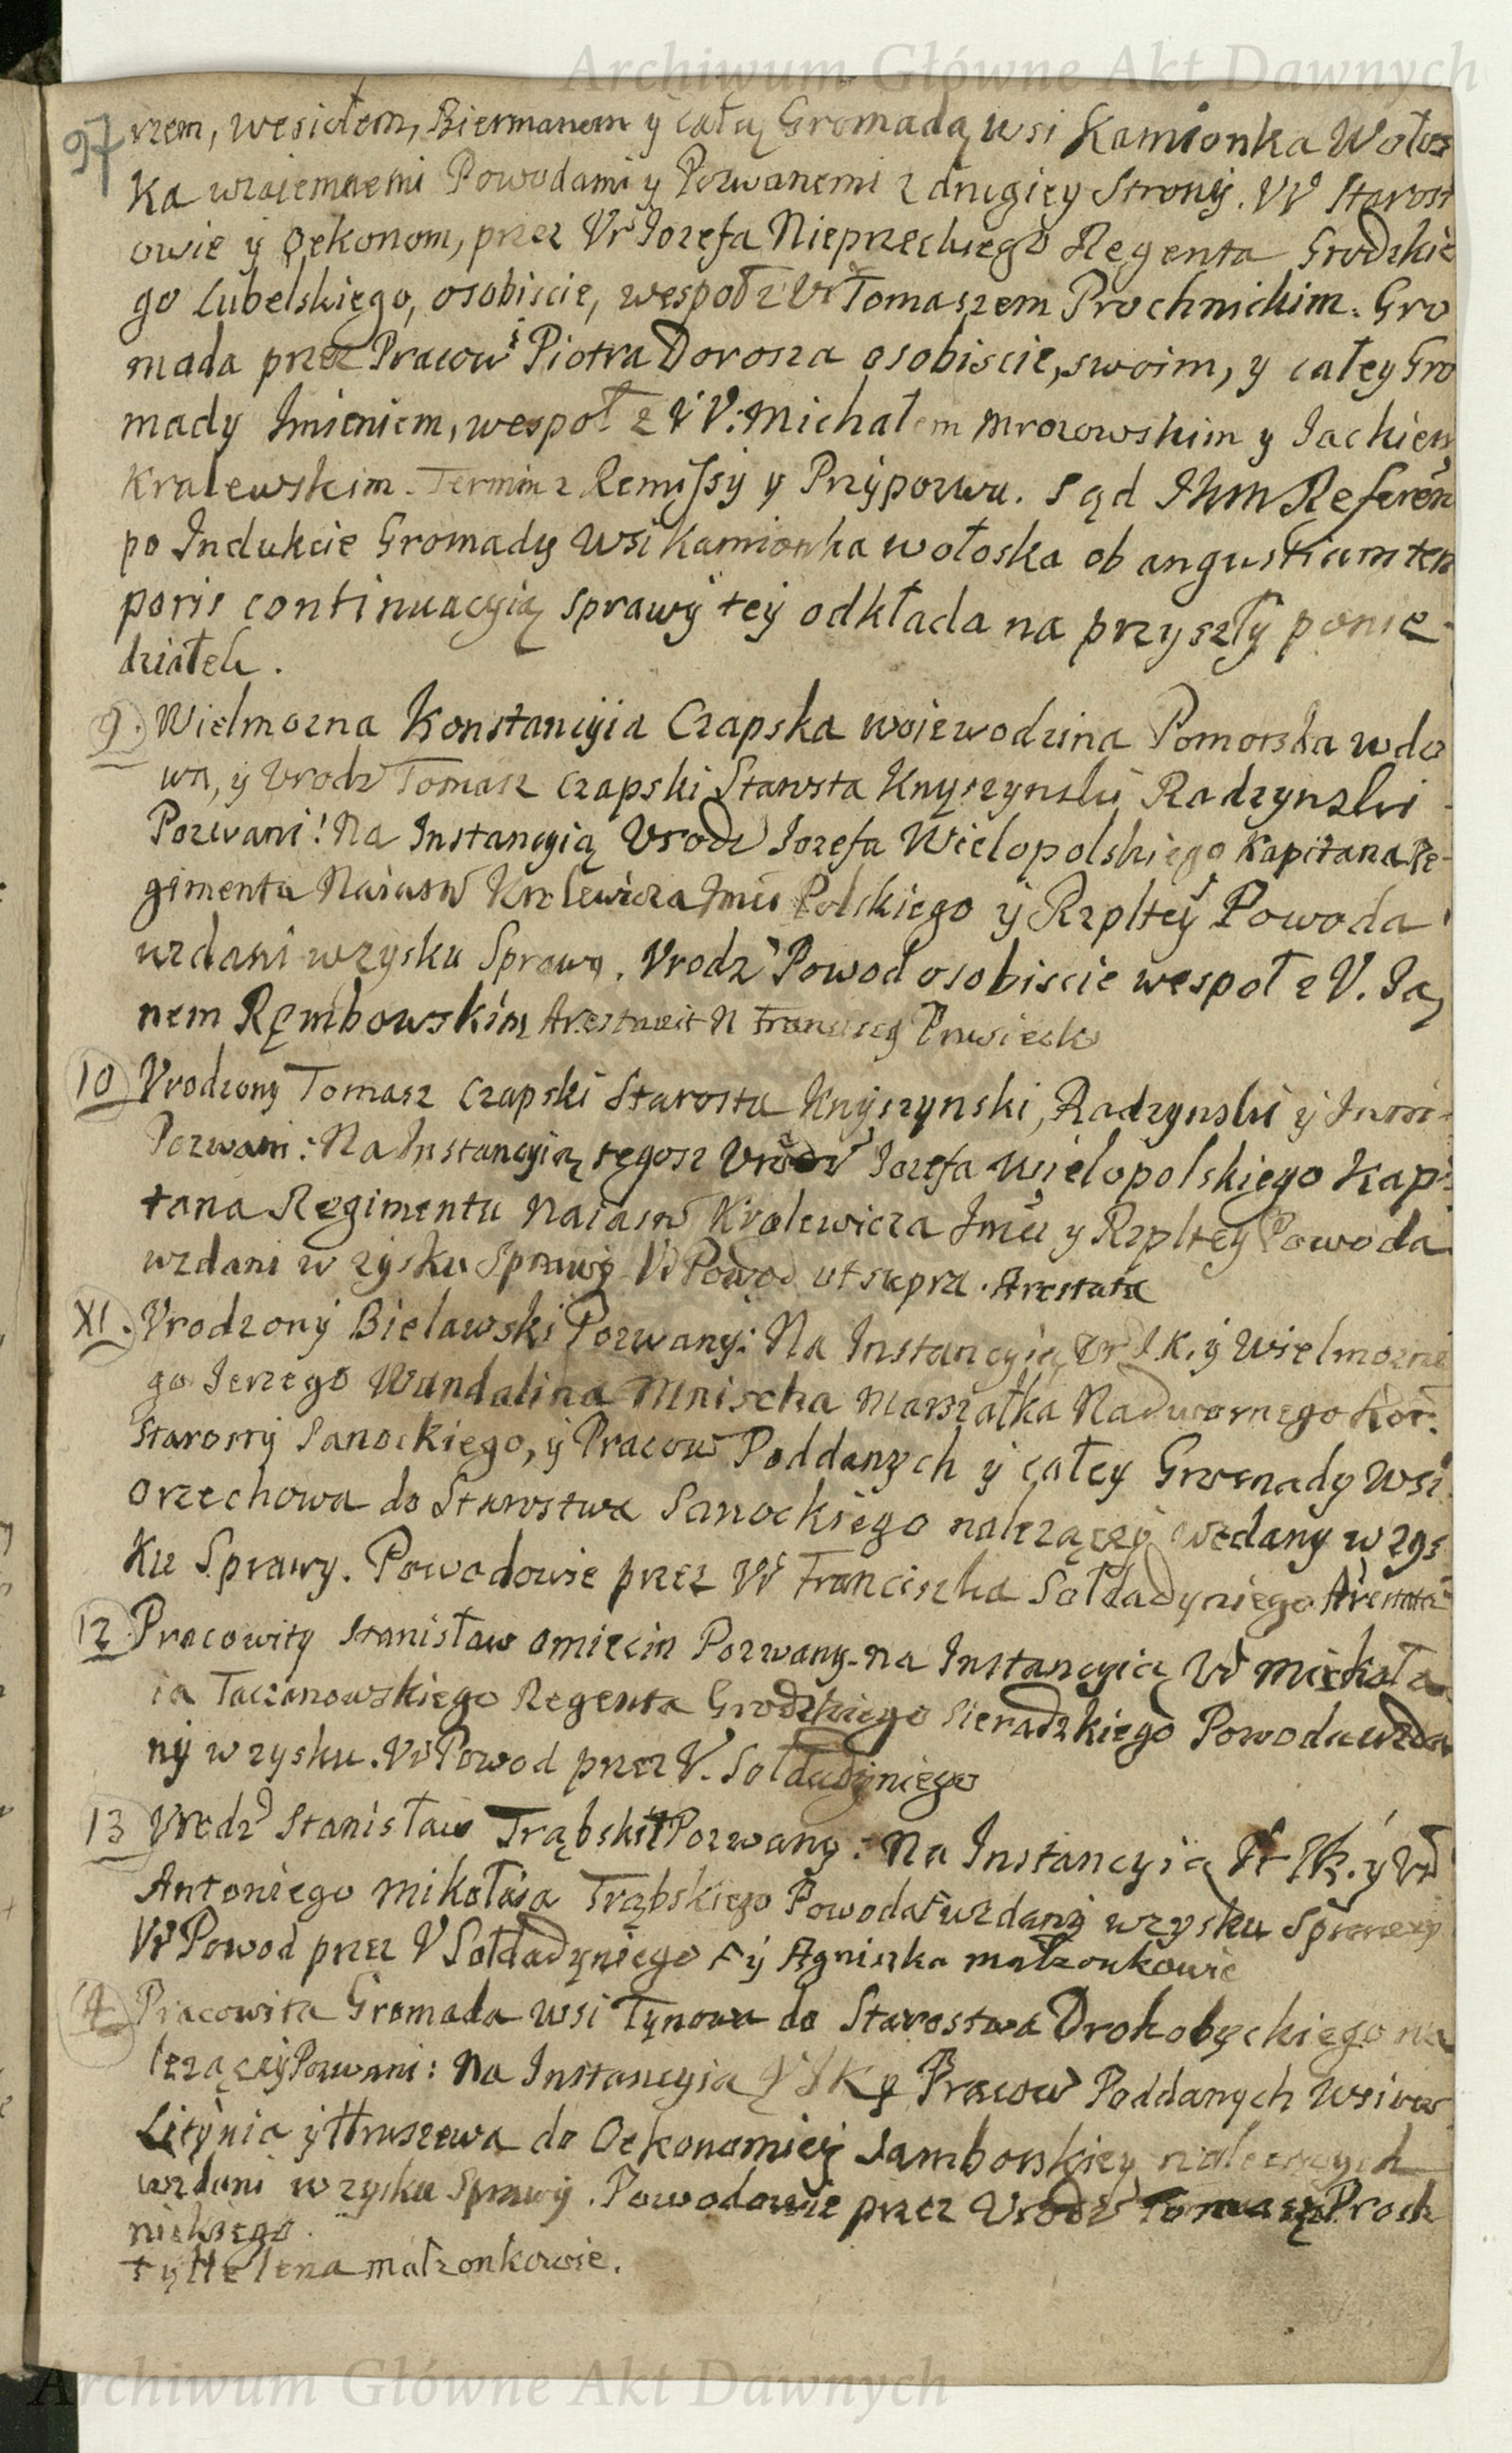 Archiwum Główne Akt Dawnych
97
rzem, wesiołem, Biermanem y całą Gromadą wsi Kamionka Wołos
ka wzaiemnemi Powodami y Pozwanemi z drugiey Strony. Vr Starost
owie y Oekonom, przez Vr Iozefa Nieprzeckiego Regenta Grodzkie
go Lubelskiego, osobiscie, wespoł z Vr Tomaszem Prochnickim. Gro
mada przez Pracow Piotra Dorosza osobiscie, swoim, y całey Gro
mady Imieniem, wespoł z VV: Michałem Mrozowskim y Iackiem
Kralewskim. Termin z Remissy y Przypozwu. Sąd Ihm Referen
po Indukcie Gromady wsi Kamionka wołoska ob angustiam tem
poris continuacyią sprawy tey odkłada na przyszły ponie-
działek.
9. Wielmozna Konstancyia Czapska woiewodzina Pomorska wdo
wa, y Vrodz Tomasz Czapski Starosta Knyszynski Radzynski
Pozwani! Na Instancyią Vrodz Iozefa Wielopolskiego Kapitana Re-
gimentu Naiasn Krolewicza Imci Polskiego y Rzpltey Powoda
wzdani w zysku Sprawy. Vrodz Powod osobiscie wespoł z V. Ia,
nem Rembowskim
10 Vrodzony Tomasz Czapski Starosta Knyszynski, Radzynski y Inni-
Pozwani: Na Instancyią tegosz Vrodz Iozefa Wielopolskiego Kapi-
tana Regimentu Naiasn Krolewicza Imci y Rzpltey Powoda
wzdani w zysku Sprawy Vr Powod ut supra. Arestata
XI. Vrodzony Bielawski Pozwany: Na Instancyią I.K. y Wielmozne
go Ierzego Wandalina Mniszcha Marszałka Nadwornego Kor:
Starosty Sanockiego, y Pracow Poddanych y całey Gromady wsi
Orzechowa do Starostwa Sanockiego nalezącey wzdany w zys
ku Sprawy. Powodowie przez Vr Franciszka Sołdadyniego Arestata
12 Pracowity Stanisław Omiecin Pozwany. na Instancyią Vr Mikoła
ia Taczanowskiego Regenta Grodzkiego Sieradzkiego Powoda wzda
ny w zysku. Vr Powod przez V. Sołdadyniego
13 Vrodz Stanisław Trąbski Pozwany: Na Instancyią IK. y Vr
Antoniego Mikołaia Trąbskiego Powoda wzdany w zysku Sprawy
Vr Powod przez V Sołdadyniego + y Agniszka małzonkowie
14 Pracowita Gromada wsi Tynowa do Starostwa Drohobyckiego na
lezącey Pozwani: Na Instancyią IK y Pracow Poddanych wsiow
Litynia y Hruszewa do Oekonomiey Samborskiey nalezących
wzdani w zysku Sprawy. Powodowie przez Vrodz Tomasza Proch
nickiego.
+ y Helena małzonkowie.
Archiwum Główne Akt Dawnych